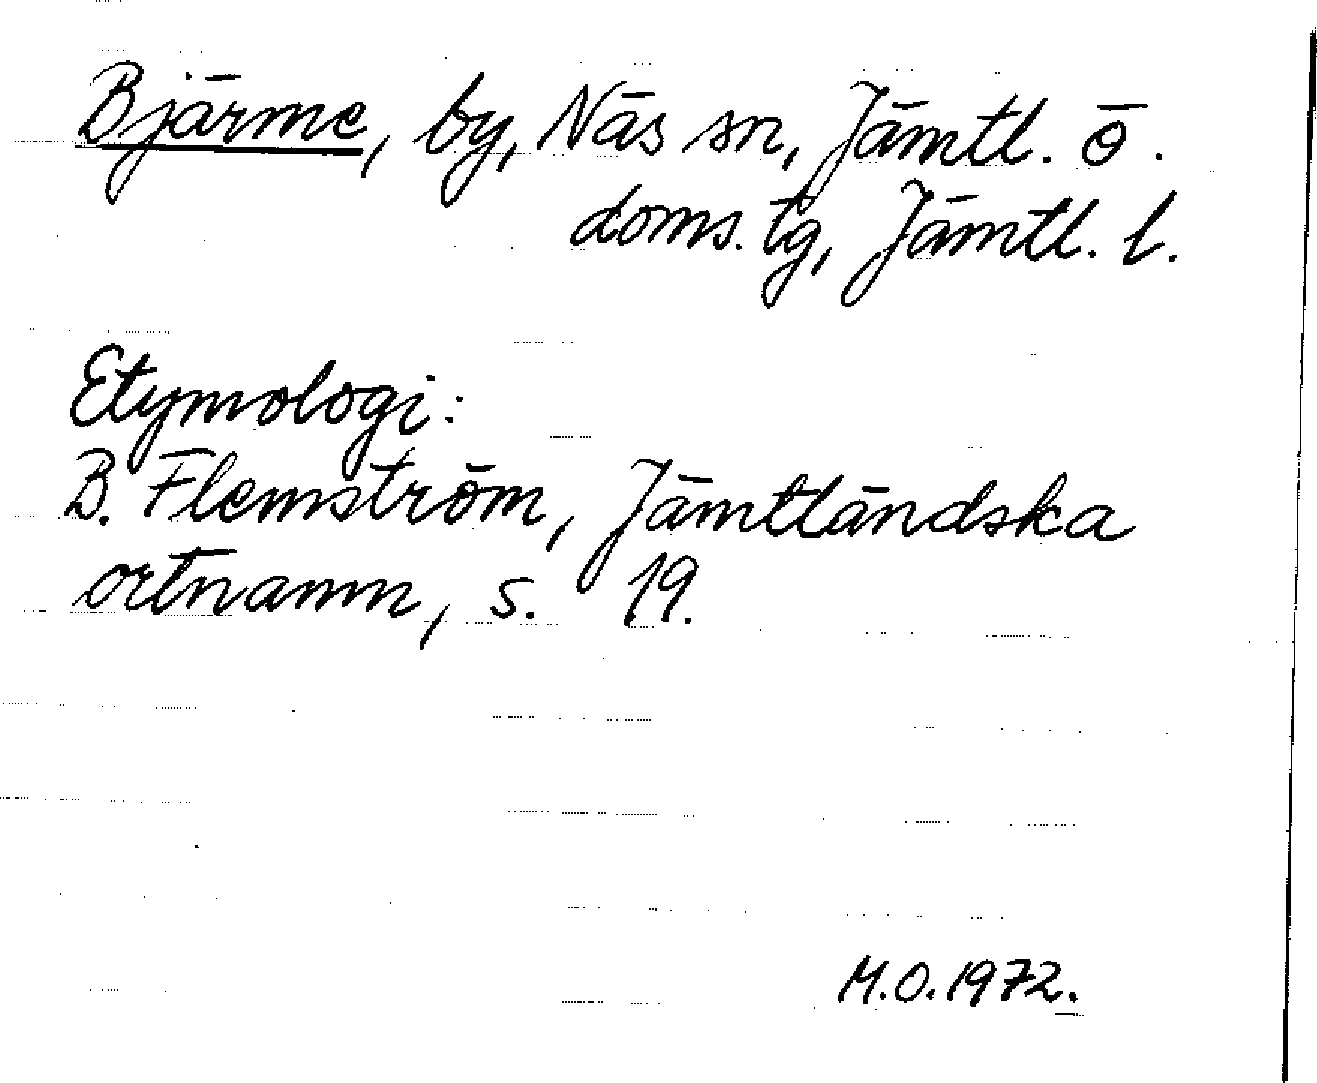 Bjärme, by, Näs sn, Jämtl. ö.
doms. tg, Jämtl. l.
Etymologi:
B. Flemström, Jämtländska
ortnamn, s. 19.
M.O. 1972.